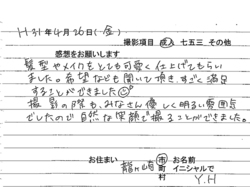 H31年4月26日(金)
撮影項目 成人 七五三 その他
感想をお願いします
髪型やメイクをとても可愛く仕上げてもらい
ました。希望なども聞いて頂き、すごく満足
することができました☺
撮影の際も、みなさん優しく明るい雰囲気
でしたので自然な笑顔で撮ることができました。
お住まい 龍ヶ崎 市 町 村 お名前 イニシャルで Y.H